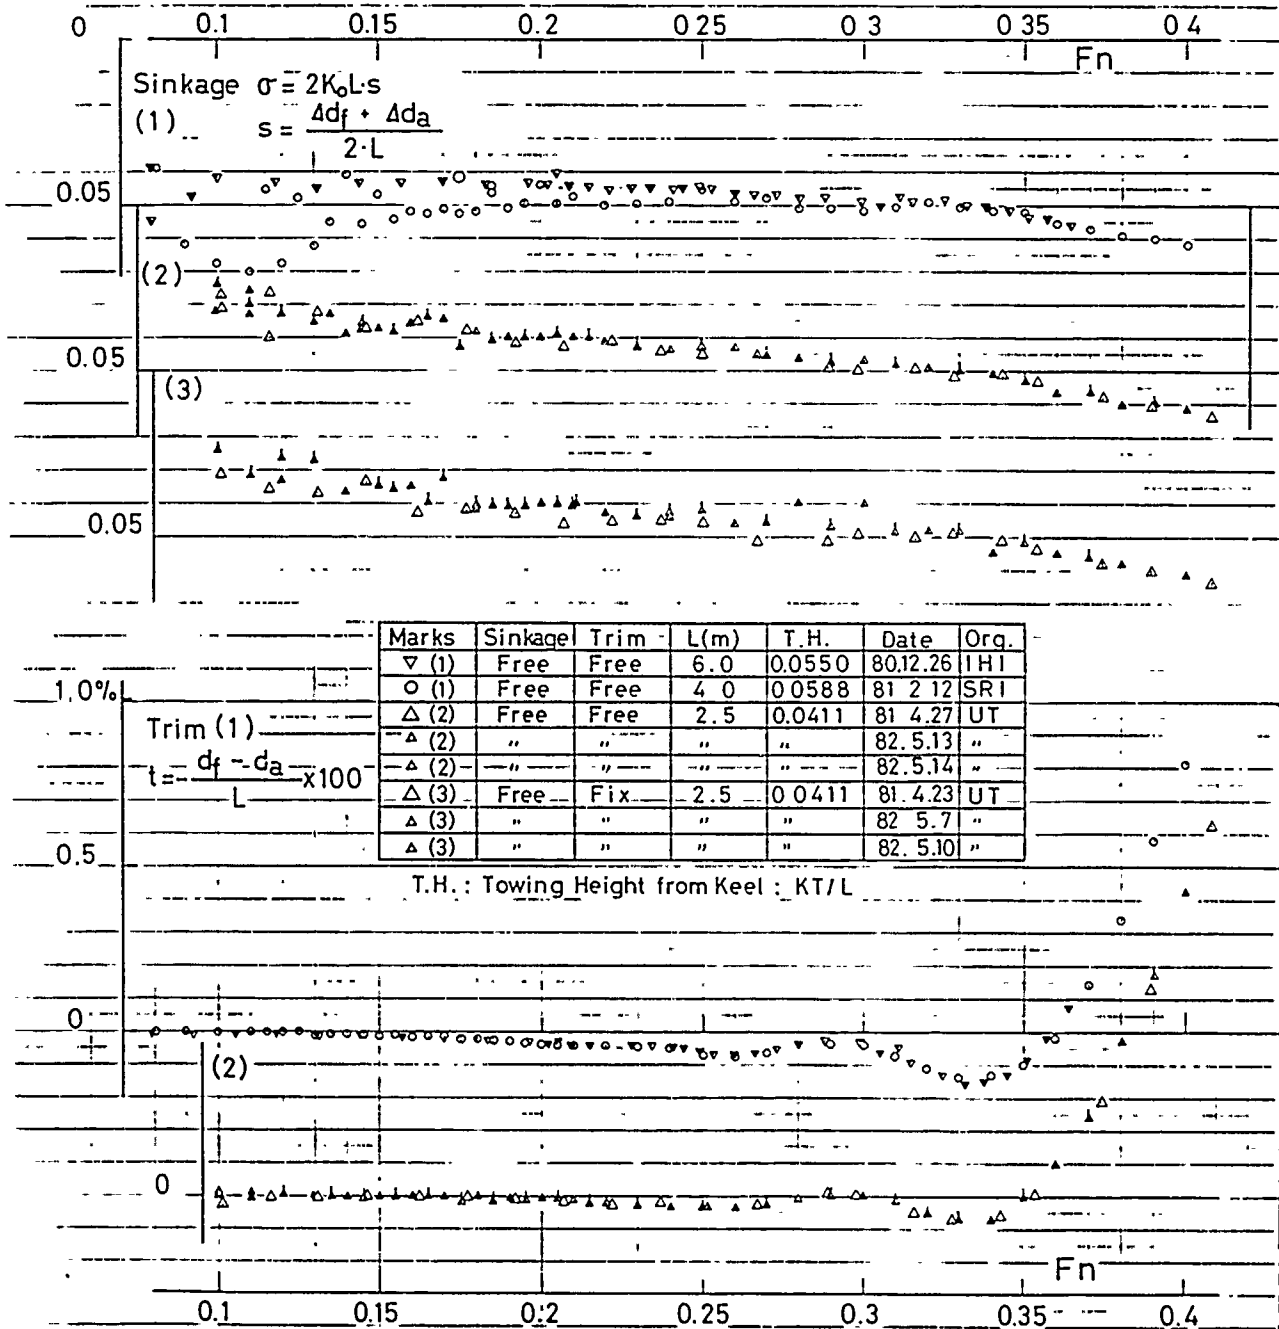 0 0.1 0.15 0.2 0 25 0 3 0 35 0 4
Fn
Sinkage σ = 2K₀L·s
(1) s = Δdf + Δda
2·L
0.05
(2)
0.05
(3)
0.05
Marks Sinkage Trim L(m) T.H. Date Org.
▽ (1) Free Free 6.0 0.0550 80.12.26 IHI
○ (1) Free Free 4 0 0.0588 81 2 12 SRI
△ (2) Free Free 2.5 0.0411 81 4.27 UT
△ (2) " " " " 82.5.13 "
△ (2) " " " " 82.5.14 "
△ (3) Free Fix 2.5 0 0411 81.4.23 UT
△ (3) " " " " 82 5.7 "
△ (3) " " " " 82.5.10 "
1.0%
Trim (1)
t = - df - da x100
L
0.5
T.H. : Towing Height from Keel : KT/L
0
(2)
0
Fn
0.1 0.15 0.2 0.25 0.3 0.35 0.4